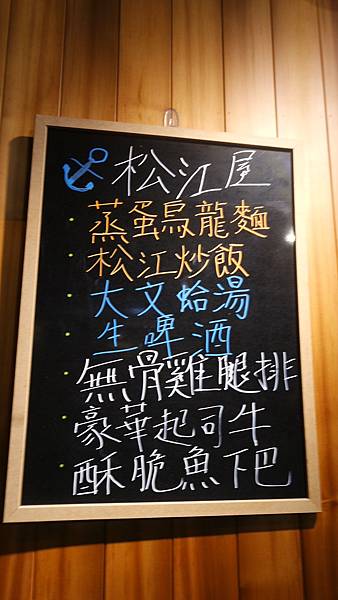 松江屋
蒸蛋烏龍麵
松江炒飯
大文蛤湯
生啤酒
無骨雞腿排
豪華起司牛
酥脆魚下巴